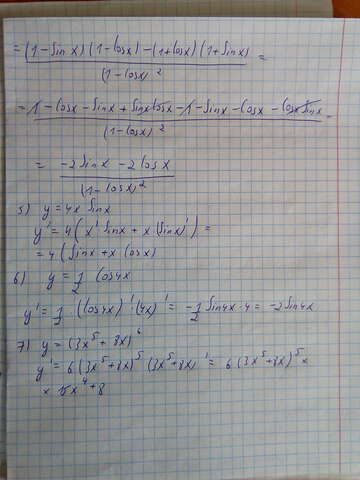 = (1 - sin x)(1 - cos x) - (1 + cos x)(1 + sin x) / (1 - cos x)^2 =
= 1 - cos x - sin x + sin x cos x - 1 - sin x - cos x - cos x sin x / (1 - cos x)^2 =
= -2 sin x - 2 cos x / (1 - cos x)^2
5) y = 4x sin x
y' = 4(x' sin x + x (sin x)') =
= 4(sin x + x cos x)
6) y = 1/2 cos 4x
y' = 1/2 (cos 4x)' (4x)' = -1/2 sin 4x · 4 = -2 sin 4x
7) y = (3x^5 + 8x)^6
y' = 6(3x^5 + 8x)^5 (3x^5 + 8x)' = 6(3x^5 + 8x)^5 ×
× 15x^4 + 8